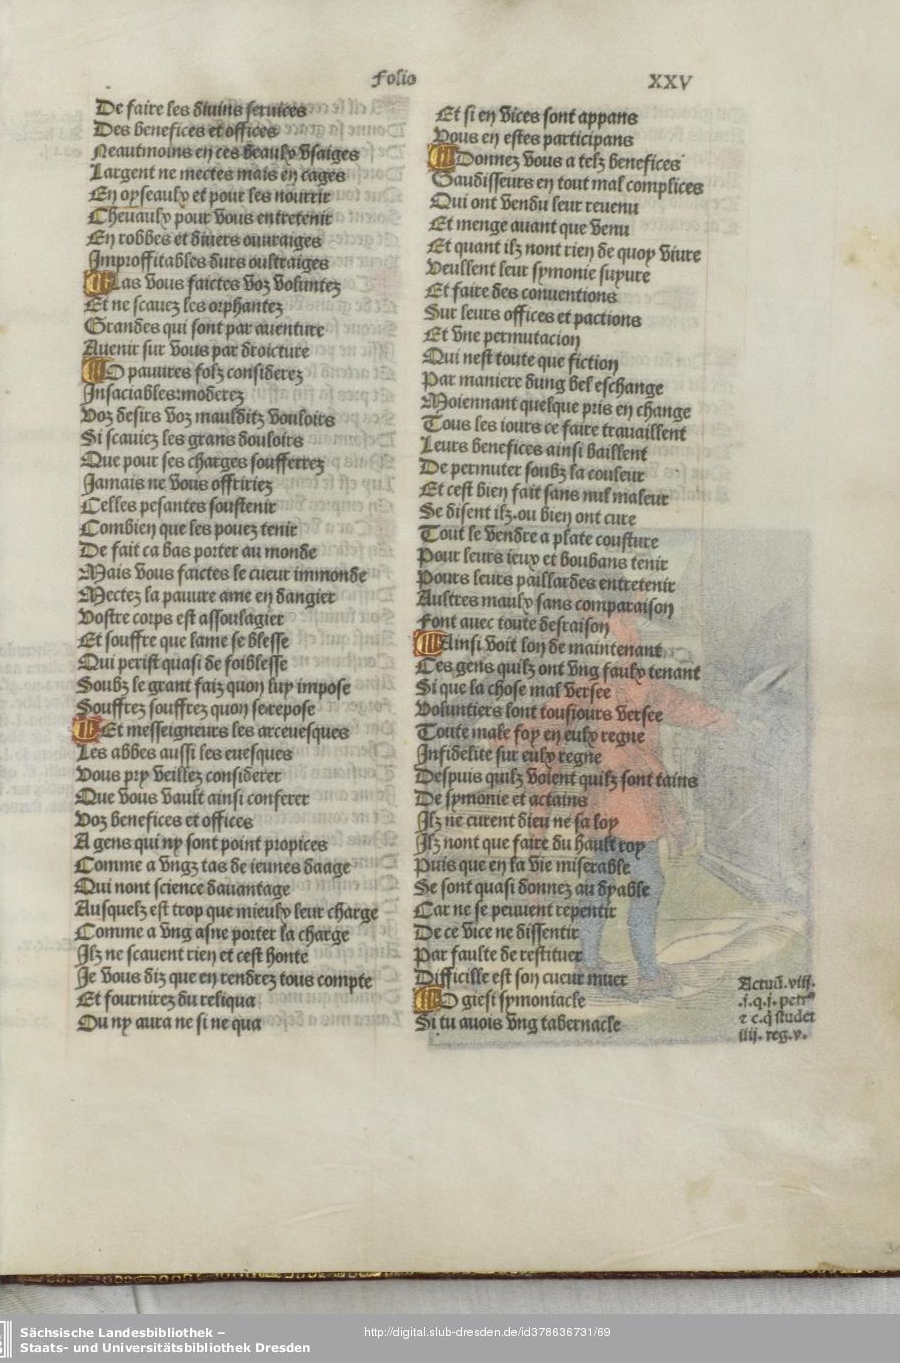 Folio XXV
De faire les diuins seruices
Des benefices et offices
Neautmoins en ces beaulx vsaiges
Largent ne mectes mais en cages
En oyseaulx et pour les nourrir
Cheuaulx pour vous entretenir
En robbes et diuers ouuraiges
Improffitables durs oultraiges
Las vous faictes voz voluntez
Et ne scauez les orphantez
Grandes qui sont par auenture
Auenir sur vous par droicture
O pauures folz considerez
Insaciables:moderez
Voz desirs voz maulditz vouloirs
Si scauiez les grans douloirs
Que pour ses charges soufferrez
Jamais ne vous offririez
Celles pesantes soustenir
Combien que les pouez tenir
De fait ca bas porter au monde
Mais vous faictes le cueur immonde
Mectez la pauure ame en dangier
Vostre corps est assoulagier
Et souffre que lame se blesse
Qui perist quasi de foiblesse
Soubz le grant faiz quon luy impose
Souffrez souffrez quon se repose
Et messeigneurs les arceuesques
Les abbes aussi les euesques
Vous pry veillez considerer
Que vous vault ainsi conferer
Voz benefices et offices
A gens qui ny sont point propices
Comme a vngz tas de ieunes daage
Qui nont science dauantage
Ausquelz est trop que mieulx leur charge
Comme a vng asne porter la charge
Ilz ne scauent rien et cest honte
Je vous diz que en rendrez tous compte
Et fournirez du reliqua
Ou ny aura ne si ne qua
Et si en vices sont appans
Vous en estes participans
Donnez vous a telz benefices
Gaudisseurs en tout mal complices
Qui ont vendu leur reuenu
Et menge auant que venu
Et quant ilz nont rien de quoy viure
Veullent leur symonie suyure
Et faire des conuentions
Sur leurs offices et pactions
Et vne permutacion
Qui nest toute que fiction
Par maniere dung bel eschange
Moiennant quelque pris en change
Tous les iours ce faire trauaillent
Leurs benefices ainsi baillent
De permuter soubz la couleur
Et cest bien fait sans nul maleur
Se disent ilz.ou bien ont cure
Tout le vendre a plate cousture
Pour leurs ieux et boubans tenir
Pours leurs paillardes entretenir
Aultres maulx sans comparaison
Font auec toute desraison
Ainsi voit lon de maintenant
Ces gens quilz ont vng faulx tenant
Si que la chose mal versee
Voluntiers sont tousiours versee
Toute male foy en eulx regne
Infidelite sur eulx regne
Despuis quilz voient quilz sont tains
De symonie et actains
Ilz ne curent dieu ne sa loy
Ilz nont que faire du hault roy
Puis que en la vie miserable
Se sont quasi donnez au dyable
Car ne se peuuent repentir
De ce vice ne dissentir
Par faulte de restituer
Difficille est son cueur muer
O giesi symoniacle
Si tu auois vng tabernacle
Actuū. viij.
.j.q.j. petrꝰ
⁊ c.q̄ studet
iiij. reg.v.
Sächsische Landesbibliothek –
Staats- und Universitätsbibliothek Dresden
http://digital.slub-dresden.de/id378636731/69